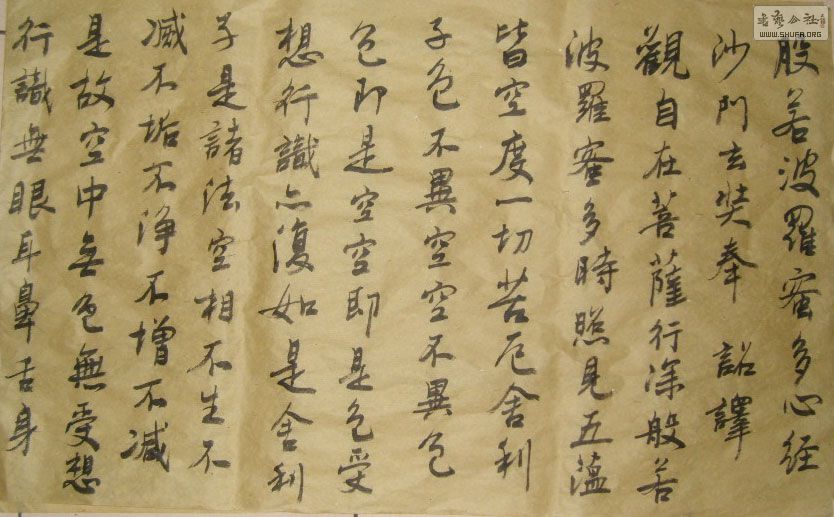 般若波羅蜜多心经
沙門玄奘奉 詔譯
觀自在菩薩行深般若
波羅蜜多時照見五蕴
皆空度一切苦厄舍利
子色不異空空不異色
色即是空空即是色受
想行識亦復如是舍利
子是諸法空相不生不
滅不垢不淨不增不减
是故空中無色無受想
行識無眼耳鼻舌身
WWW.SHUFA.ORG